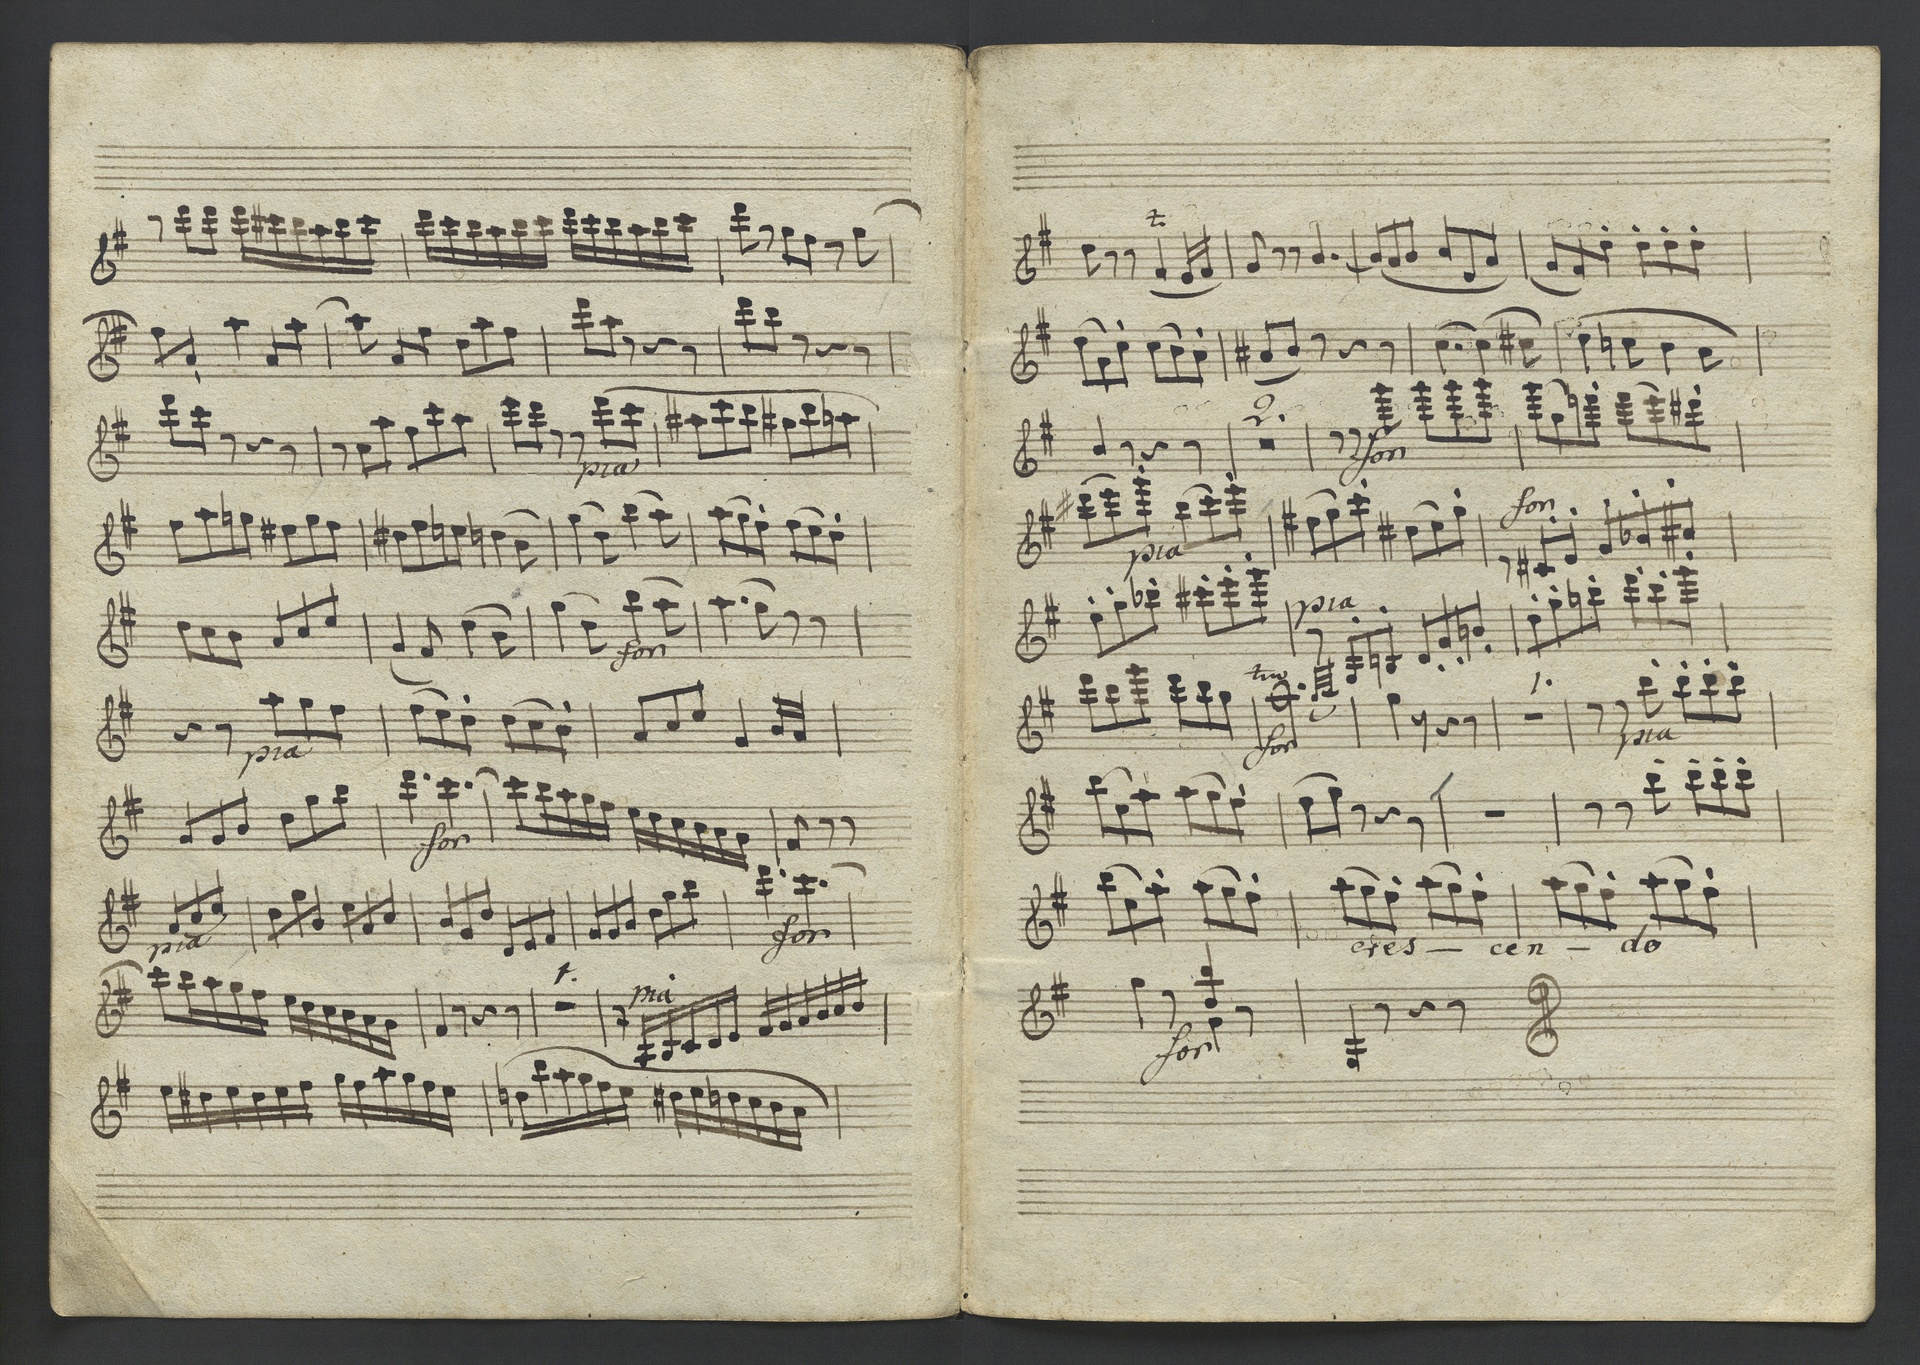 pia
for
pia
for
pia
for
1.
pia
t
2.
for
for
pia
pia
tr
for
1.
pia
cres — cen — do
for